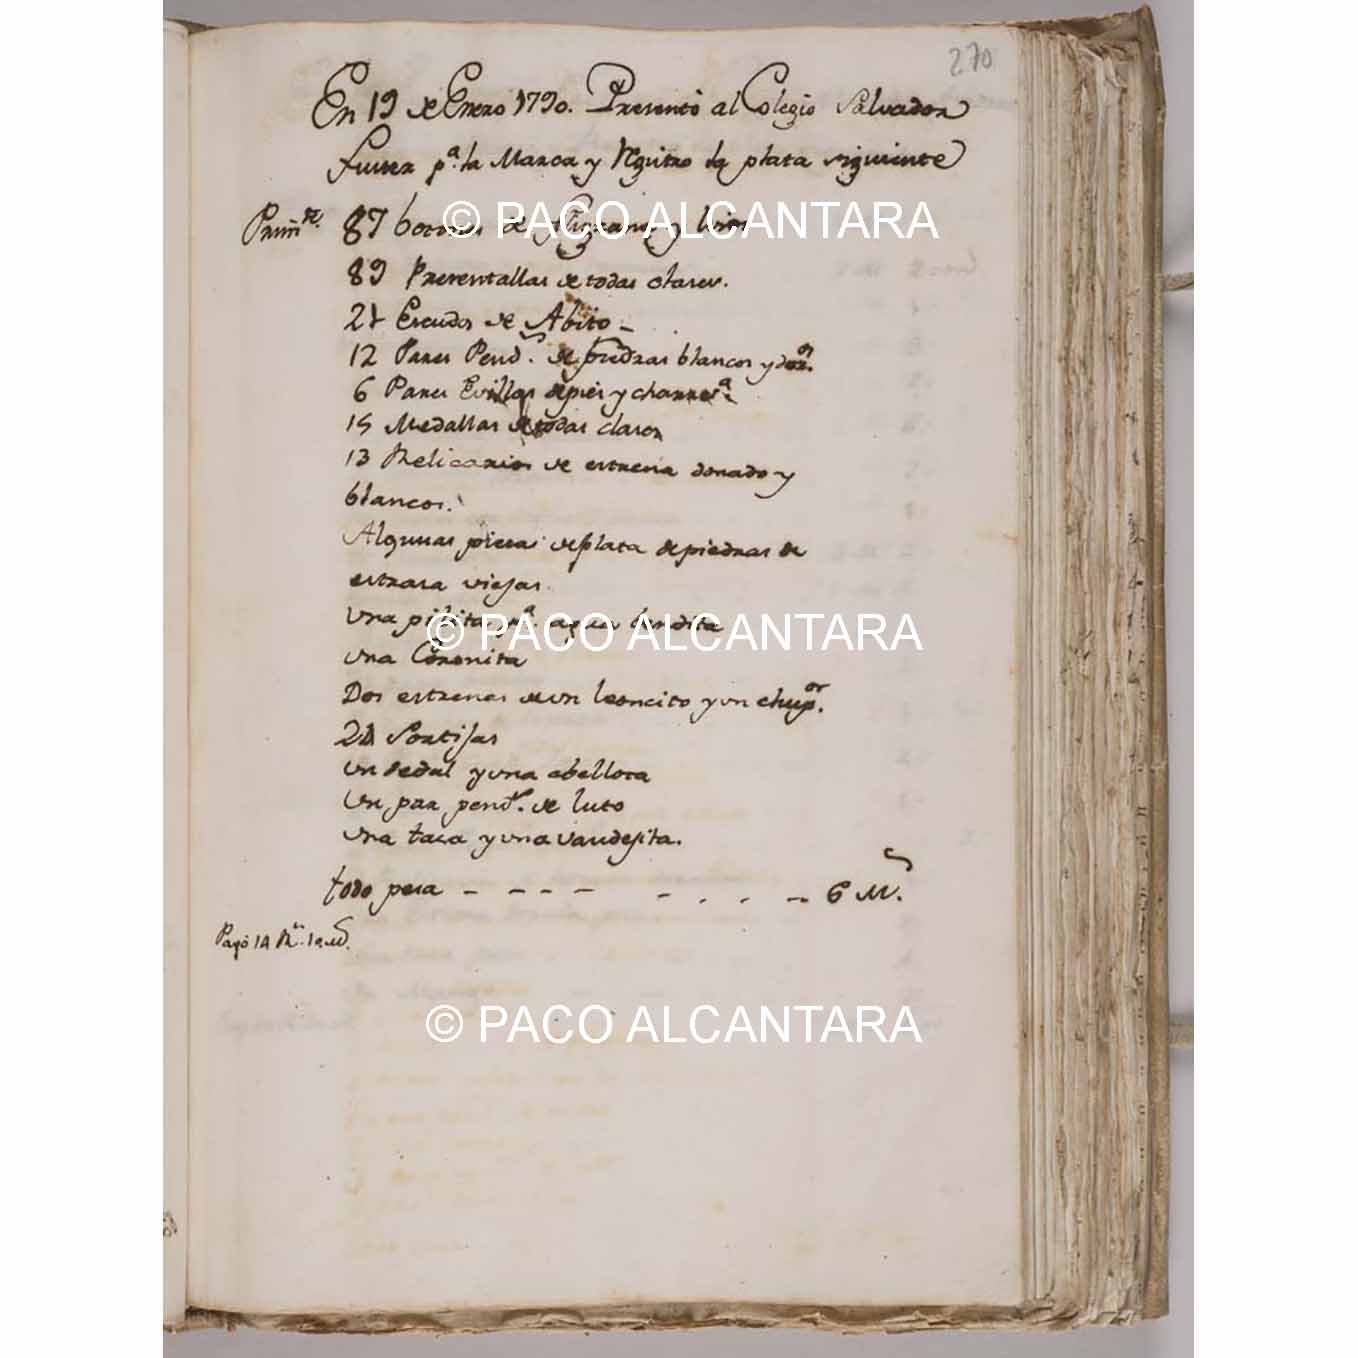 270
En 19 de Enero 1790. Presentó al Colegio Salvador
Fuster pª. la Marca y Rguitro la plata siguiente
Primte. 87 botones de filigrana y lisos
© PACO ALCANTARA
89 Presentallas de todas clases.
21 Escudos de Abito –
12 Pares Pends. de piedras blancos y dor.os
6 Pares Evillas de pies y charrera.
15 Medallas de todas clases
13 Relicarios de estrena dorado y
blancos.
Algunas piesas de plata de piedras de
estrasa viejas.
Una pilita pª. agua bendita
© PACO ALCANTARA
una Coronita
Dos estrenas de un leoncito y un chupor.
21 Sortijas
un dedal y una abellota
Un par pends. de luto
una tasa y una vandejita.
todo pesa – – – – – . . . – 6 Ms.
Pagó 14 Rs. 1a ms.
© PACO ALCANTARA